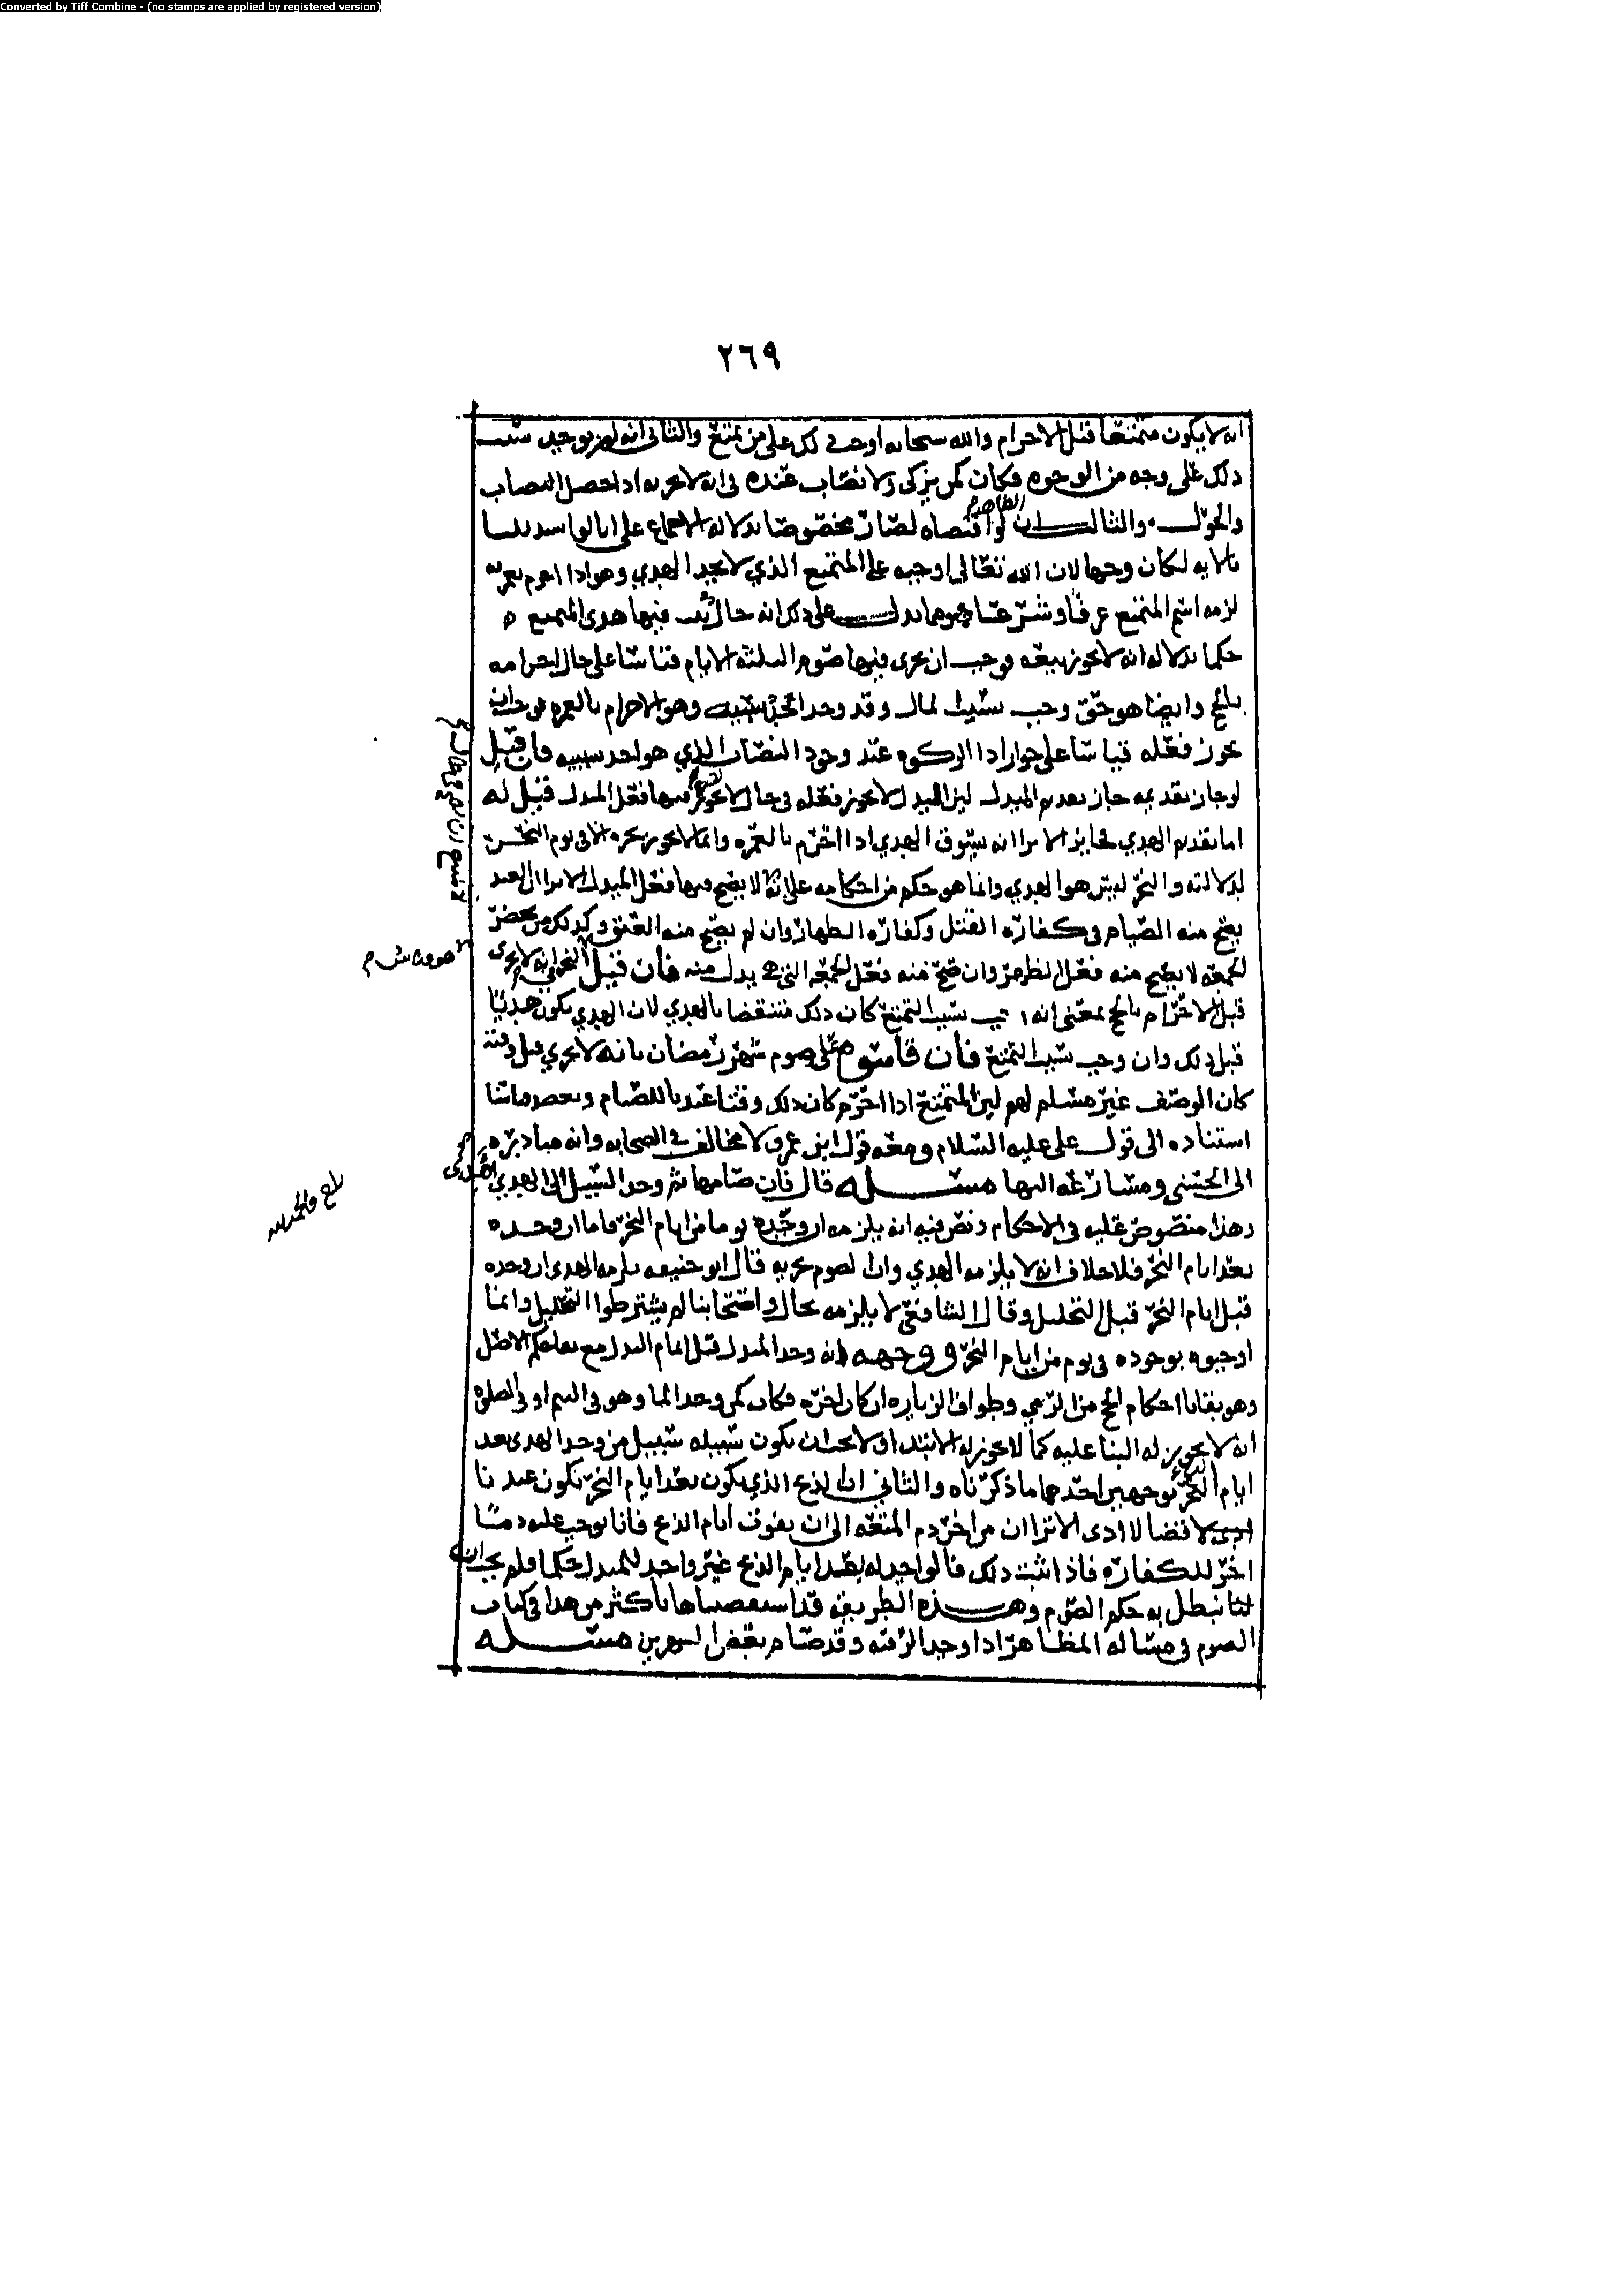 Converted by Tiff Combine - (no stamps are applied by registered version)
٢٦٩
انه لا يكون متمتعا قبل الاحرام والله سبحانه اوجب ذلك على من تمتع والثاني انه لم يوجد سبب
ذلك على وجه من الوجوه فكان كمن يزكى ولا نصاب عنده فى انه لا يجزيه اذا حصل النصاب
والحول والثالث ان الظاهر لو اقتضاه لصار مخصوصا بدلالة الاجماع على انا لو استدللنا
بالايه لكان وجها لان الله تعالى اوجبه على المتمتع الذي لا يجد الهدي وهو اذا احرم بعمرته
لزمه اسم المتمتع عرفا وشرعا على ذلك انه حال يثبت فيها هدى المتمتع ه
حكما بدلاله انه لا يجوز بيعه فوجب ان يجزى فيها صوم الثلثه الايام قياسا على حال احرامه
بالحج وايضا هو حق وجب بسببه لمال وقد وجد احد سببيه وهو الاحرام بالعمره فوجب ان
يجوز فعله قياسا على جواز اداء الزكوه عند وجود النصاب الذي هو احد سببيه فان قيل
لو جاز تقديمه جاز تقديم المبدل لان البدل لا يجوز فعله فى حال لا يجوز فيها فعل المبدل قيل له
اما تقديم الهدي فجايز الا ترا انه يسوق الهدي اذا احرم بالعمره وانما لا يجوز نحره الا فى يوم النحر
لدلالته والنحر ليس هو الهدي وانما هو حكم من احكامه على انه لا يصح فيها فعل المبدل الا ترا ان العبد
يصح منه الصيام فى كفارة القتل وكفارة الظهار وان لم يصح منه العتق وكذلك من يحضر
الجمعه لا يصح منه فعل الظهر وان صح منه فعل الجمعه التى هى بدل منه فان قيل النحر انه لا يجزى
قبل الاحرام بالحج بمعنى انه يجب بسبب التمتع كان ذلك منتقضا بالهدي لان الهدي يكون هديا
قبل ذلك وان وجب بسبب التمتع فان قاسوه على صوم شهر رمضان بانه لا يجزي قبل وقته
كان الوصف غير مسلم لهم لان المتمتع اذا احرم كان ذلك وقتا عندنا للصيام ويعضد قياسنا
استناده الى قول على عليه السلام ومعه قول ابن عمر ولا مخالف فى الصحابه وانه مبادره
الى الحسنى ومسارعه اليها مسئله قال فان صامها ثم وجد السبيل الى الهدي اهدى
وهذا منصوص عليه فى الاحكام ونص فيه انه يلزمه ان وجده يوما من ايام النحر فاما ان وجده
بعد ايام النحر فلا خلاف انه لا يلزمه الهدي وان الصوم يجزيه قال ابو حنيفه يلزمه الهدى ان وجده
قبل ايام النحر قبل التحليل وقال الشافعى لا يلزمه بحال واصحابنا لم يشترطوا التحليل وانما
اوجبوه بوجوده فى يوم من ايام النحر ووجهه انه وجد المبدل قبل اتمام البدل مع بقا حكم الاصل
وهو بقايا احكام الحج من الرمي وطواف الزياره ان كان اخره فكان كمن وجد الما وهو فى التيمم او فى الصلوه
انه لا يجوز له البنا عليه كما لا يجوز له الابتداء ولا يجب ان يكون سبيله سبيل من وجد الهدى بعد
ايام النحر لوجهين احدهما ما ذكرناه والثاني ان الذبح الذي يكون بعد ايام النحر يكون عندنا
قضا لا ادى الا ترا ان من اخر دم المتعه الى ان يفوت ايام الذبح فانا نوجب عليه دمًا
اخر للكفارة فاذا ثبت ذلك فالواجد له بعد ايام الذبح غير واجد للمبدل حكما فلم يجب ان
يبطل به حكم الصوم وهذه الطريقه قد استقصيناها باكثر من هذا فى كتاب
الصوم فى مسالة المظاهر اذا وجد الرقبه وقد صام بعض الشهرين مسئله
بلغ والحمد لله